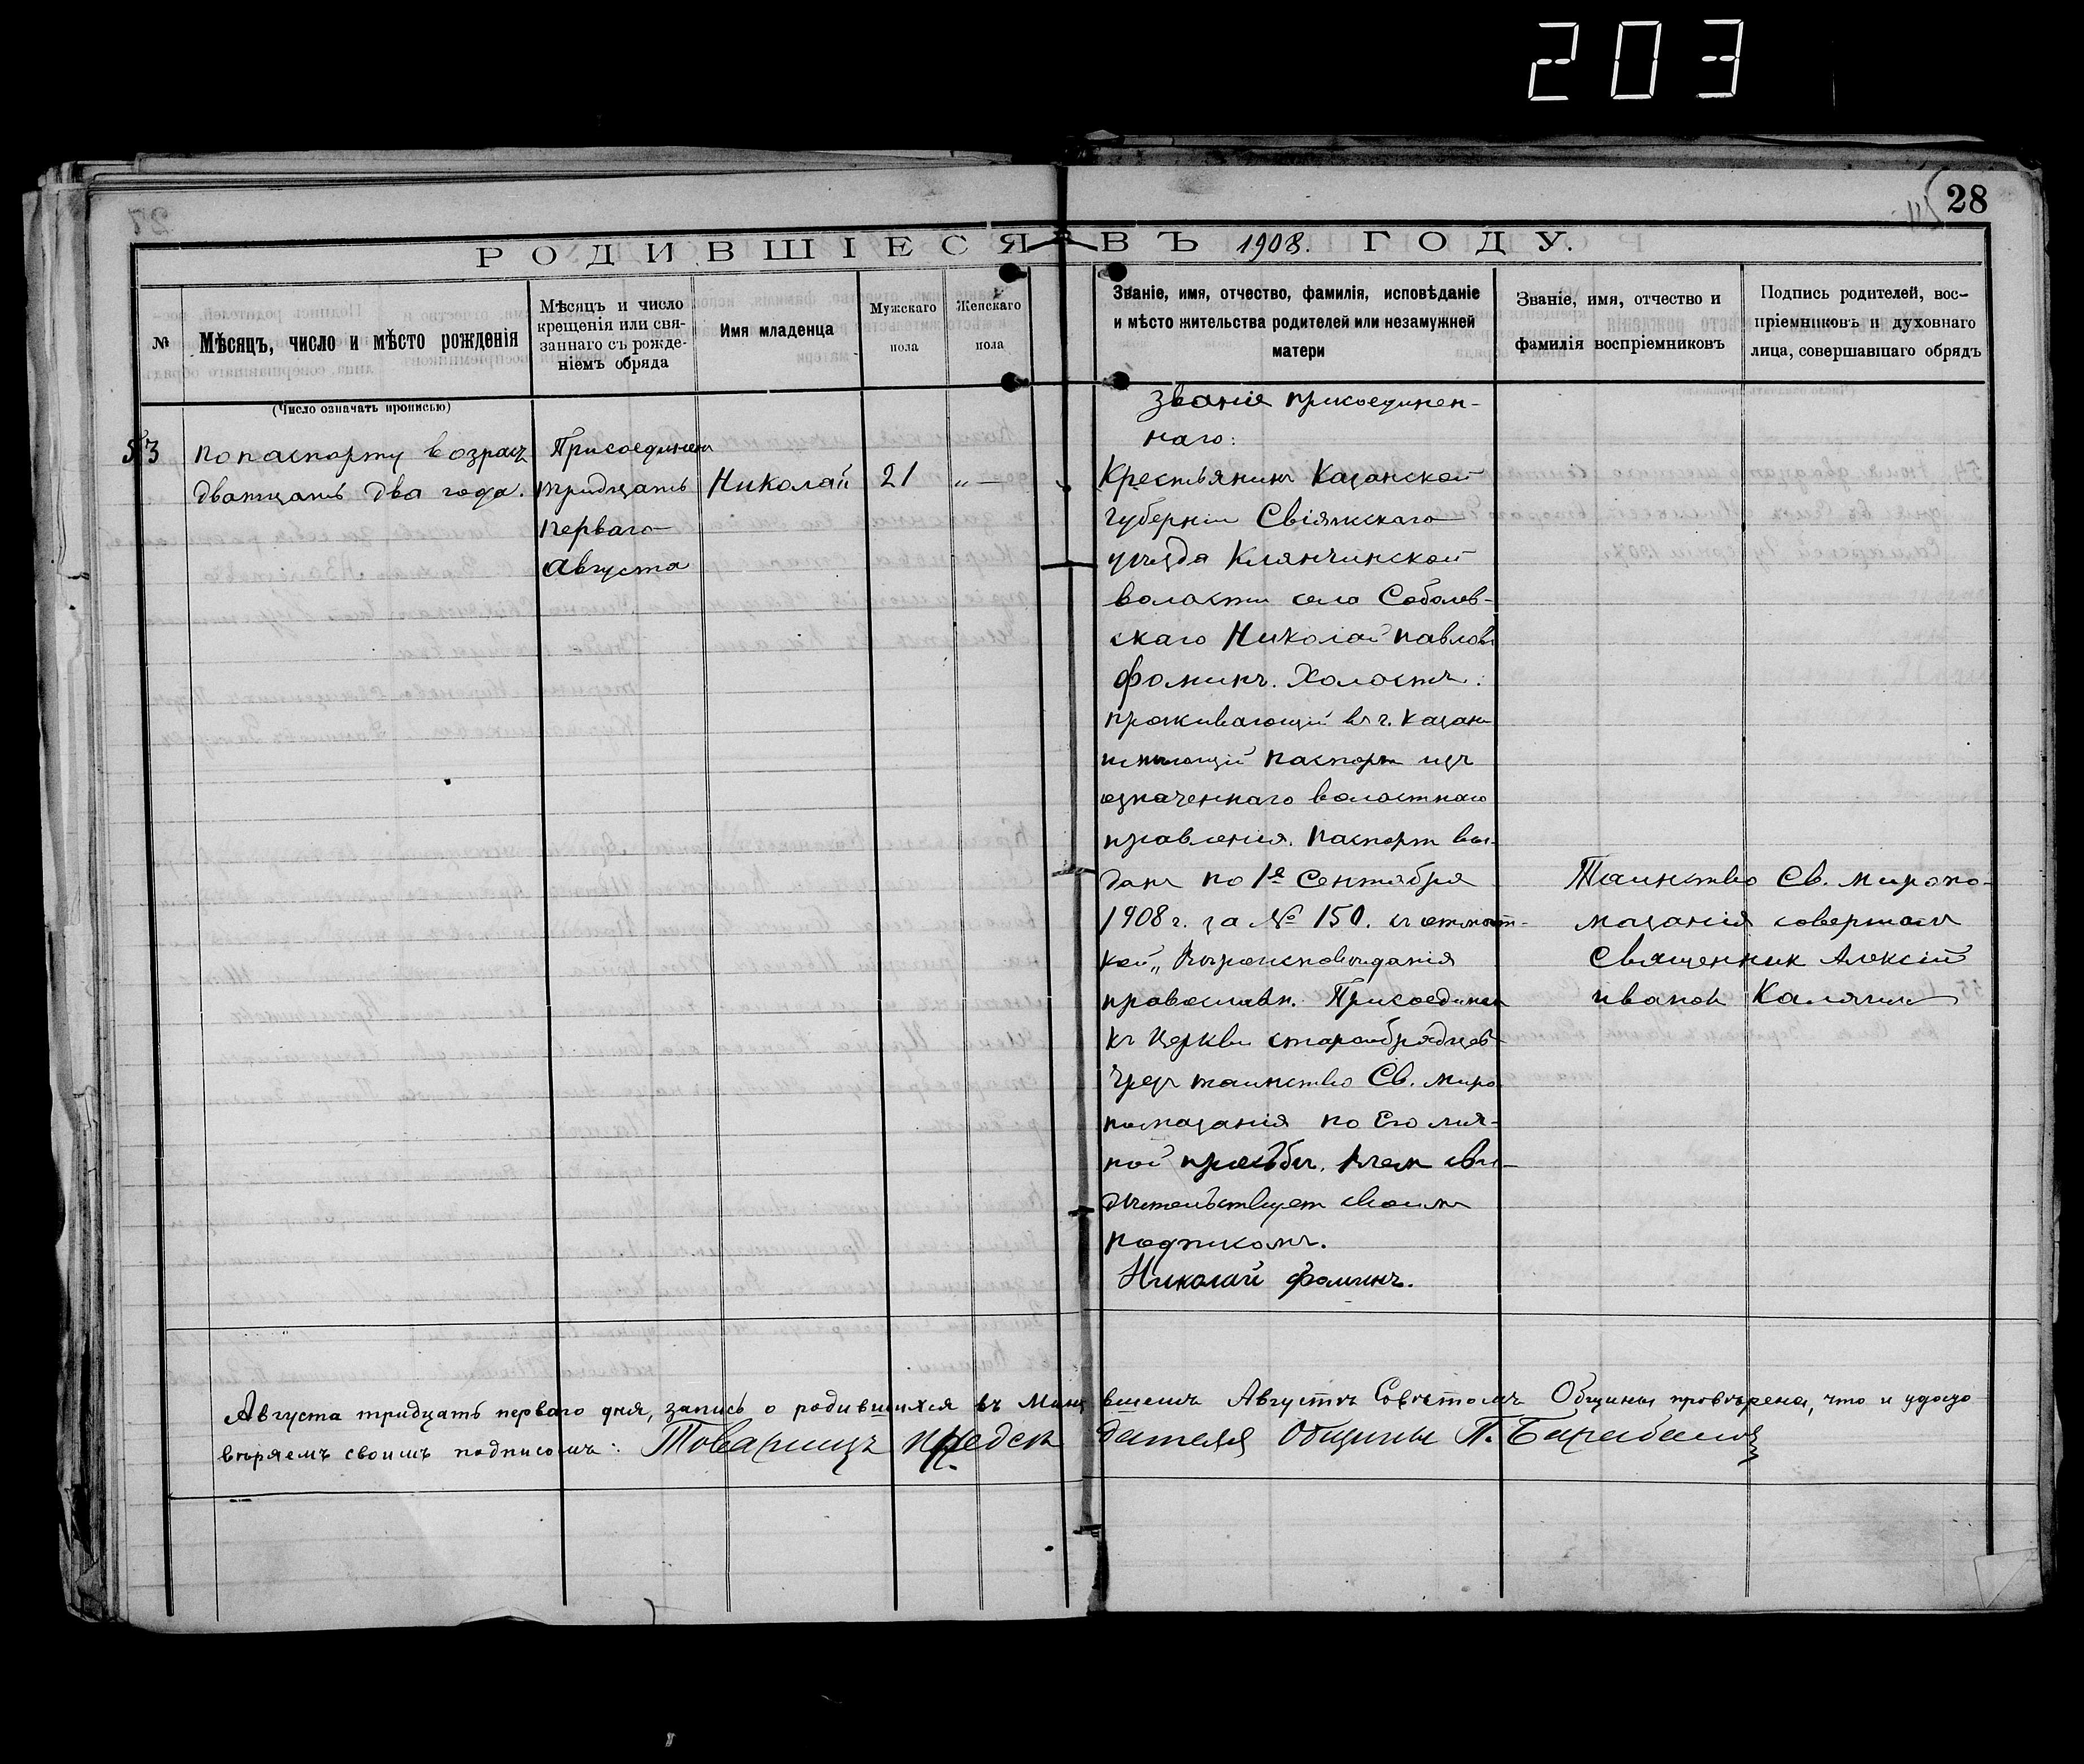 203
28
РОДИВШІЕСЯ ВЪ 1908. ГОДУ.
№
Мѣсяцъ, число и мѣсто рожденія
Мѣсяцъ и число
крещенія или свя-
заннаго съ рожде-
ніемъ обряда
Имя младенца
Мужскаго
пола
Женскаго
пола
Званіе, имя, отчество, фамилія, исповѣданіе
и мѣсто жительства родителей или незамужней
матери
Званіе, имя, отчество и
фамилія воспріемниковъ
Подпись родителей, вос-
пріемниковъ и духовнаго
лица, совершавшаго обрядъ
(Число означать прописью)
53
По паспорту возраст
дватцать два года.
Присоединенъ
тридцать
перваго
Августа
Николай
21
„ —
Званіе присоединен-
наго:
Крестьянинъ Казанской
губерніи Свіяжскаго
уѣзда Клянчинской
волости села Соболев-
скаго Николай Павловъ
Фоминъ. Холостъ.
проживающій въ г. Казани
имѣющій паспортъ изъ
означеннаго волостнаго
правленія. Паспортъ вы-
данъ по 1е Сентября
1908 г. за № 150. съ отмѣт-
кой „Вѣроисповѣданія
православн. Присоединен
къ Церкви старообрядцев
чрезъ таинство Св. Миро
помазанія по Его лич-
ной просьбѣ. В чем сви-
дѣтельствует своим
подписомъ.
Николай Фоминъ.
Таинство Св. Миропо-
мазанія совершал
Священник Алексій
Иванов Калягин
Августа тридцать перваго дня, запись о родившихся въ Минувшемъ Августѣ Совѣтомъ Общины провѣрена, что и удосто
вѣряемъ своимъ подписомъ: Товарищъ председателя Общины П.